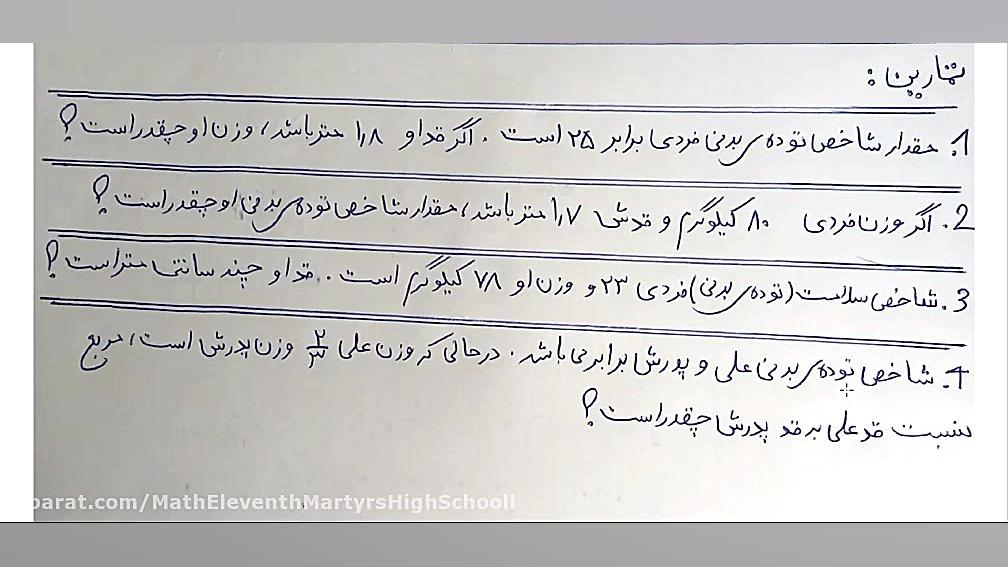 تمارین :
1. مقدار شاخص توده ی بدنی فردی برابر ۲۵ است . اگر قد او ۱٫۸ متر باشد، وزن او چقدر است؟
2. اگر وزن فردی ۸۰ کیلوگرم و قدش ۱٫۷ متر باشد، مقدار شاخص توده ی بدنی او چقدر است؟
3. شاخص سلامت (توده ی بدنی) فردی ۲۳ و وزن او ۷۸ کیلوگرم است . . قد او چند سانتی متر است؟
4. شاخص توده ی بدنی علی و پدرش برابر می باشد . درحالی که وزن علی ۲/۳ وزن پدرش است، مربع
نسبت قد علی به قد پدرش چقدر است؟
parat.com/MathEleventhMartyrsHighSchooll